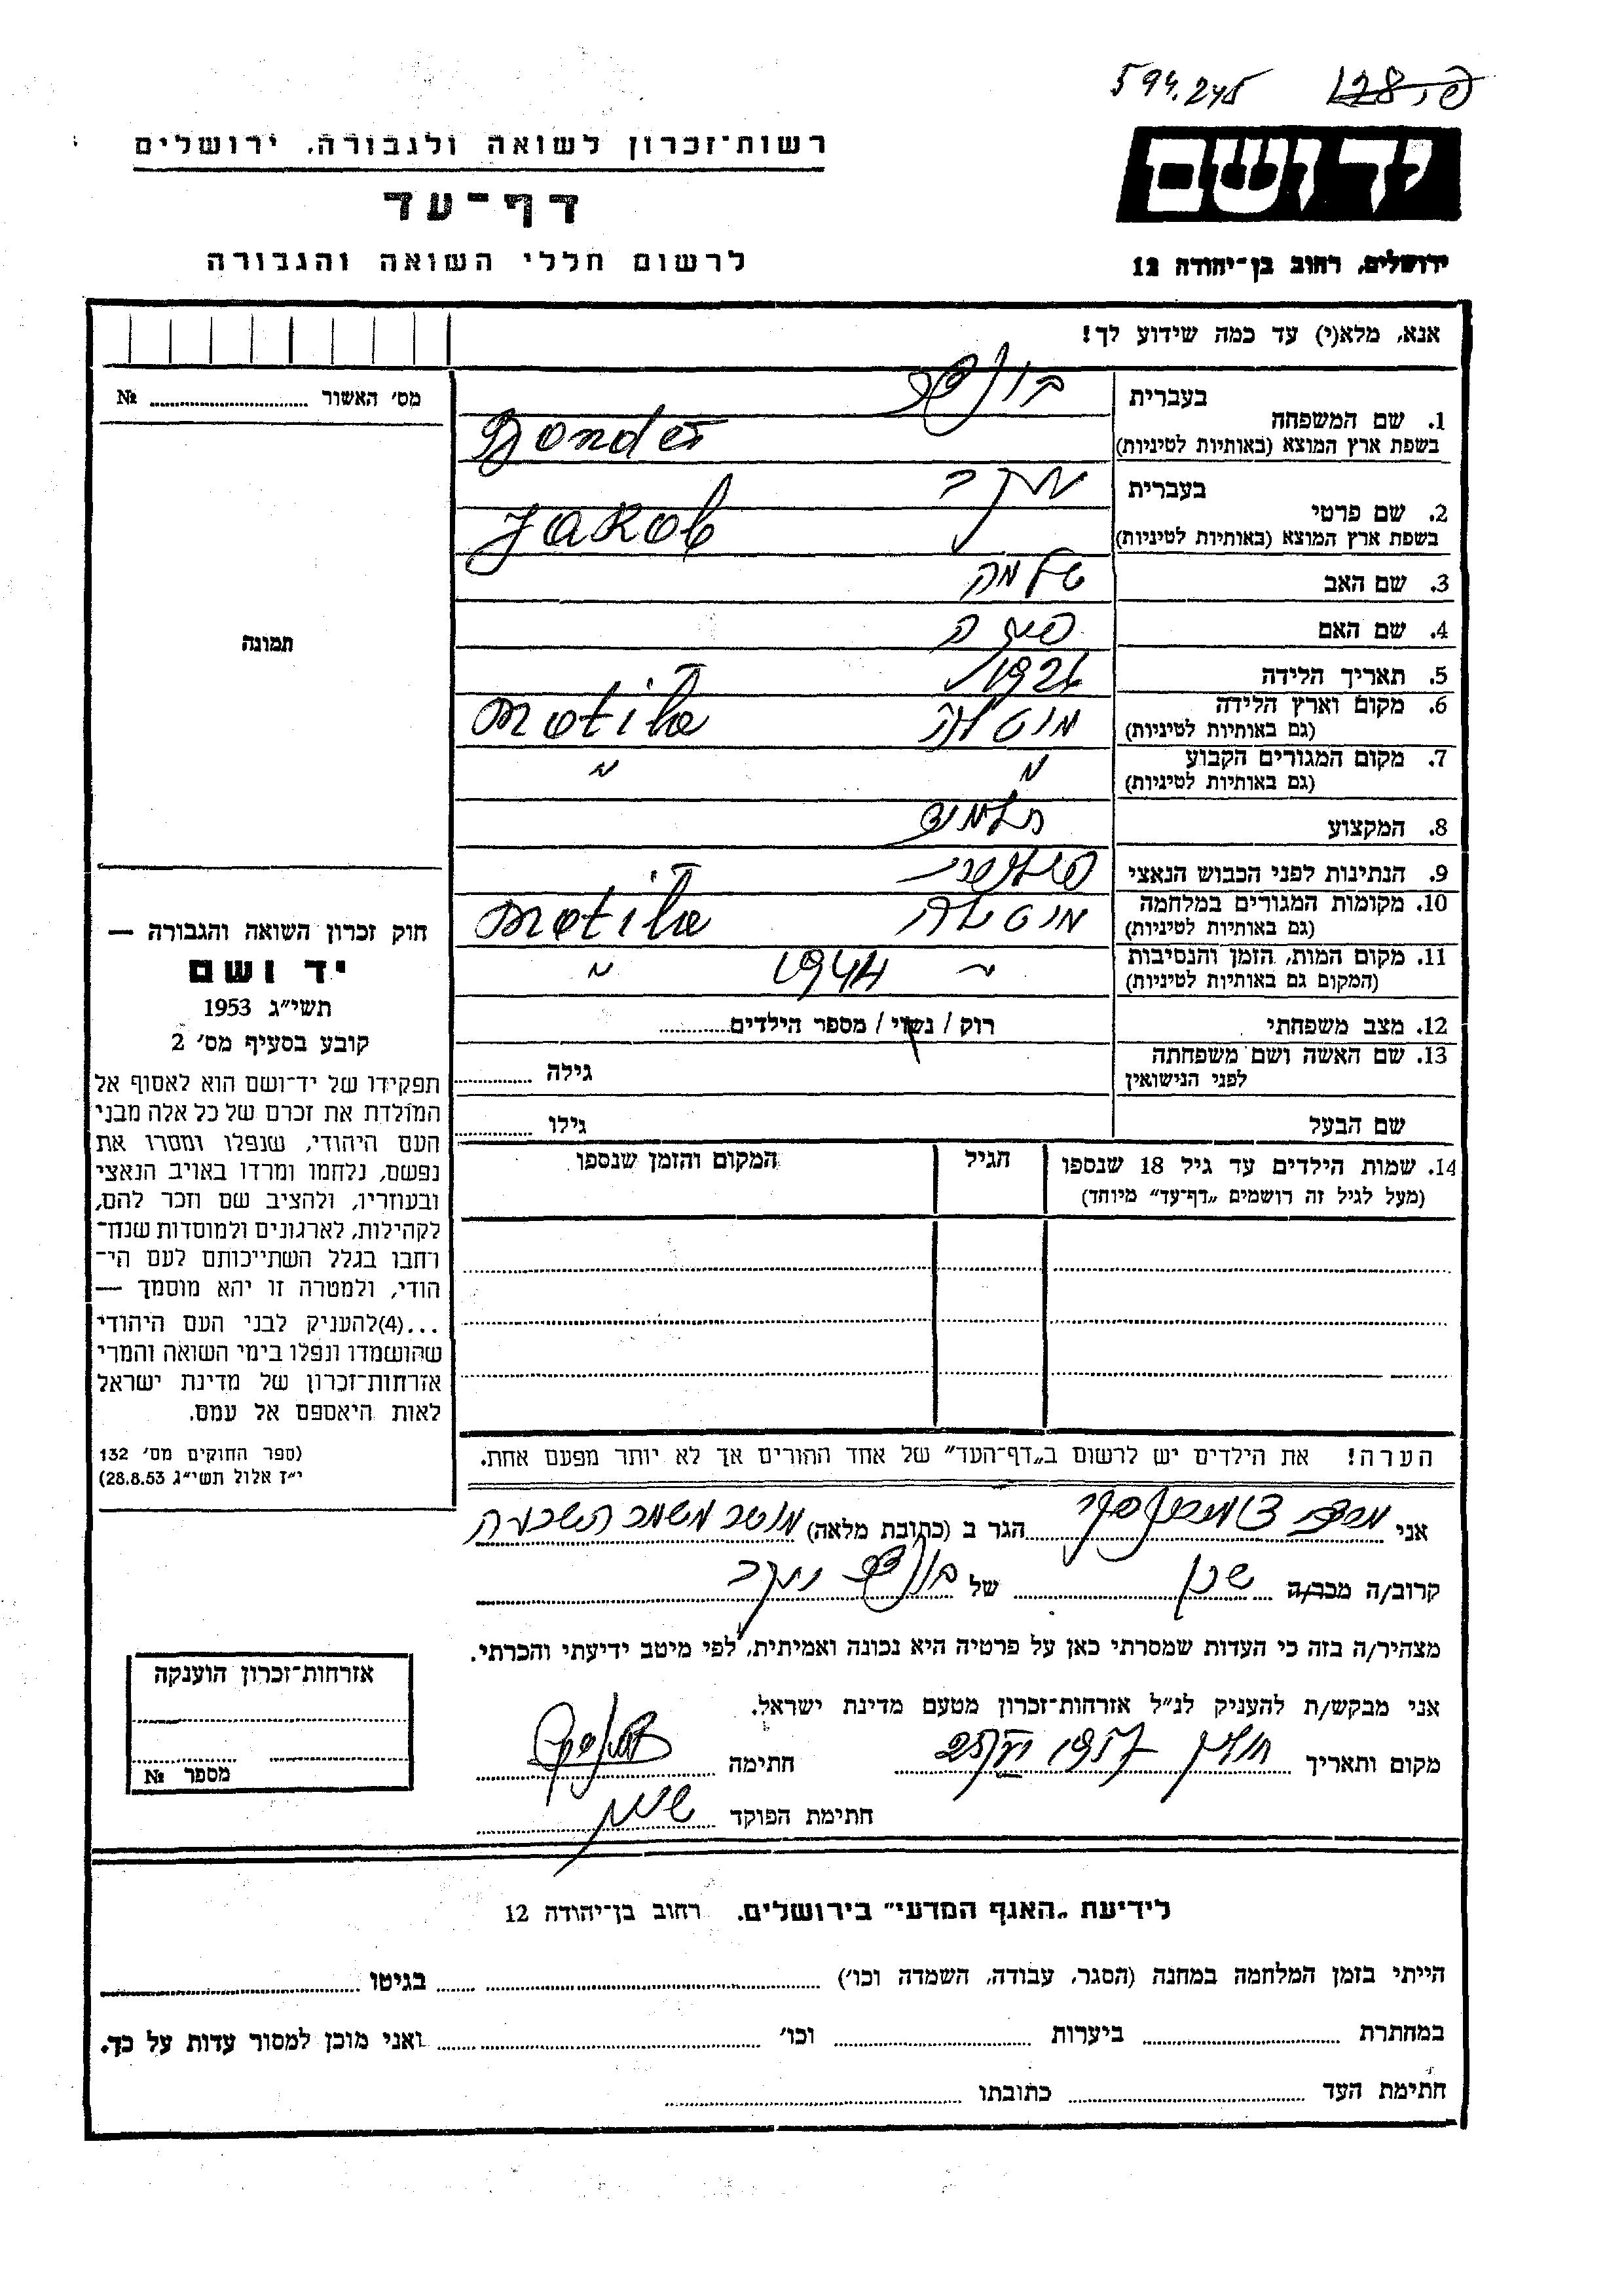 594.245
128 פ.
יד ושם
ירושלים, רחוב בן־יהודה 12
רשות־זכרון לשואה ולגבורה, ירושלים
דף־עד
לרשום חללי השואה והגבורה
אנא, מלא(י) עד כמה שידוע לך!
1. שם המשפחה
בעברית
בונדר
בשפת ארץ המוצא (באותיות לטיניות)
Bonder
2. שם פרטי
בעברית
יעקב
בשפת ארץ המוצא (באותיות לטיניות)
Jakob
3. שם האב שלמה
4. שם האם
5. תאריך הלידה
6. מקום וארץ הלידה
(גם באותיות לטיניות)
7. מקום המגורים הקבוע
(גם באותיות לטיניות)
" "
8. המקצוע תלמיד
9. הנתינות לפני הכבוש הנאצי
10. מקומות המגורים במלחמה
(גם באותיות לטיניות)
11. מקום המות, הזמן והנסיבות
(המקום גם באותיות לטיניות)
" 1944 "
12. מצב משפחתי רוק / נשוי / מספר הילדים
13. שם האשה ושם משפחתה
לפני הנישואין
גילה
שם הבעל גילו
14. שמות הילדים עד גיל 18 שנספו
(מעל לגיל זה רושמים „דף־עד" מיוחד)
הגיל
המקום והזמן שנספו
הערה! את הילדים יש לרשום ב„דף־העד" של אחד ההורים אך לא יותר מפעם אחת.
מס׳ האשור №
תמונה
חוק זכרון השואה והגבורה —
יד ושם
תשי״ג 1953
קובע בסעיף מס׳ 2
תפקידו של יד־ושם הוא לאסוף אל
המולדת את זכרם של כל אלה מבני
העם היהודי, שנפלו ומסרו את
נפשם, נלחמו ומרדו באויב הנאצי
ובעוזריו, ולהציב שם וזכר להם,
לקהילות, לארגונים ולמוסדות שנח־
רחבו בגלל השתייכותם לעם הי־
הודי, ולמטרה זו יהא מוסמך —
...(4)להעניק לבני העם היהודי
שהושמדו ונפלו בימי השואה והמרי
אזרחות־זכרון של מדינת ישראל
לאות היאספם אל עמם.
(ספר החוקים מס׳ 132
י״ז אלול תשי״ג 28.8.53)
אני הגר ב (כתובת מלאה) משמר השבעה
קרוב/ה מכר/ה שכן של בונדר יעקב
מצהיר/ה בזה כי העדות שמסרתי כאן על פרטיה היא נכונה ואמיתית, לפי מיטב ידיעתי והכרתי.
אני מבקש/ת להעניק לנ״ל אזרחות־זכרון מטעם מדינת ישראל.
מקום ותאריך חתימה
חתימת הפוקד
אזרחות־זכרון הוענקה
מספר №
לידיעת „האגף המדעי" בירושלים, רחוב בן־יהודה 12
הייתי בזמן המלחמה במחנה (הסגר, עבודה, השמדה וכו׳) בגיטו
במחתרת ביערות וכו׳ ואני מוכן למסור עדות על כך.
חתימת העד כתובתו